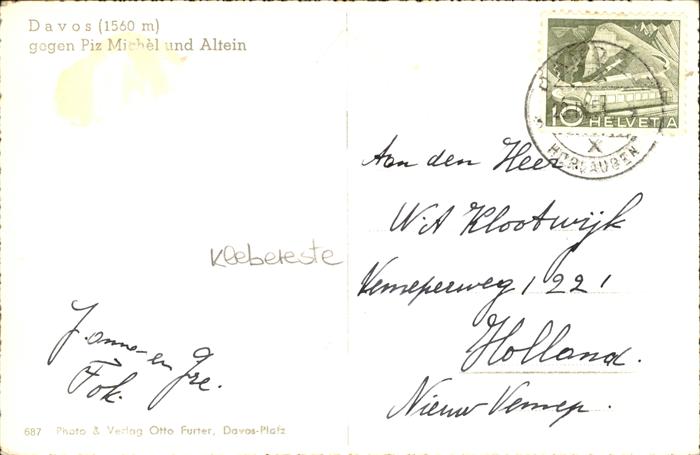 Davos (1560 m)
gegen Piz Michèl und Altein
10 HELVETIA
X
HORLAUBEN
Aan den Heer
W.A Klootwijk
Venneperweg 1221
Holland.
Nieuw Vennep.
Klebereste
Janna en Jze.
Fok.
687 Photo & Verlag Otto Furter, Davos-Platz